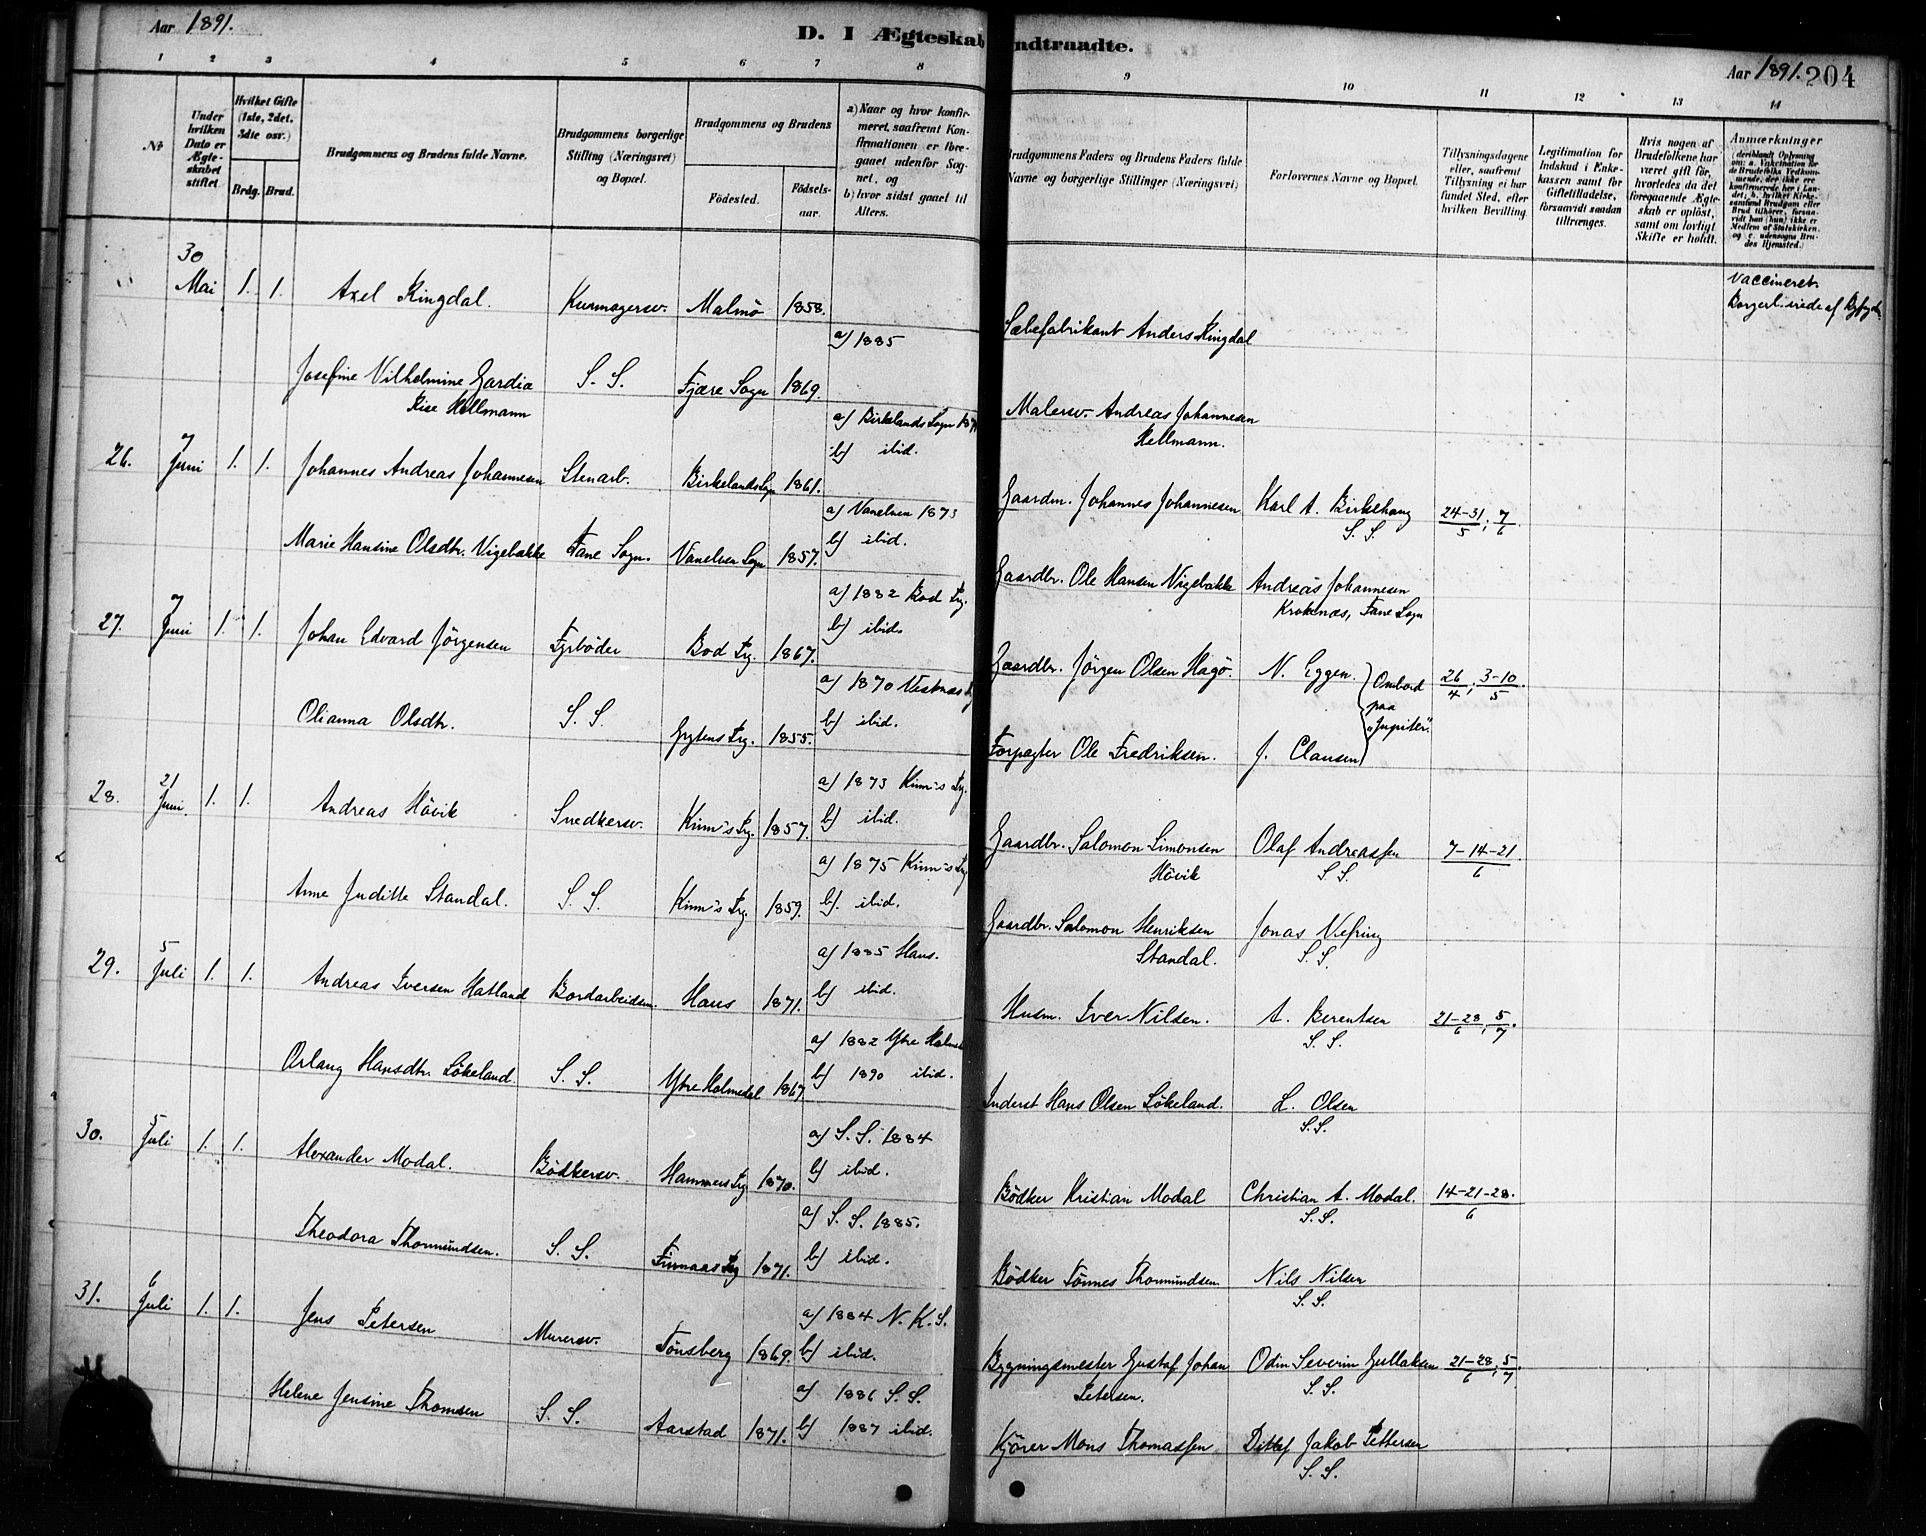 Aar 1891.
D. I Ægteskab indtraadte.
Aar 1891. 204
1 2 3 4 5 6 7 8 9 10 11 12 13 14
No
Under hvilken Dato er Ægteskabet stiftet.
Hvilket Gifte (1ste, 2det, 3die osv.)
Brdg. Brud.
Brudgommens og Brudens fulde Navne.
Brudgommens borgerlige Stilling (Næringsvei) og Bopæl.
Brudgommens og Brudens
Fødested. Fødsels-aar.
a) Naar og hvor konfirmeret, saafremt Konfirmationen er foregaaet udenfor Sognet, og
b) hvor sidst gaaet til Alters.
Brudgommens Faders og Brudens Faders fulde Navne og borgerlige Stillinger (Næringsvei)
Forlovernes Navne og Bopæl.
Tillysningsdagene eller, saafremt Tillysning ei har fundet Sted, efter hvilken Bevilling.
Legitimation for Indskud i Enkekassen samt for Giftetilladelse, forsaavidt saadan tiltrænges.
Hvis nogen af Brudefolkene har været gift før, hvorledes da det foregaaende Ægteskab er opløst, samt om lovligt Skifte er holdt.
Anmærkninger
30 Mai 1. 1. Axel Ringdal. Kurmagersv. Malmø 1858. Sæbefabrikant Anders Ringdal vaccineret.
a) 1885
Josefine Vilhelmine Gardia Rise Hellmann S. S. Fjære Sogn 1869. Malersv. Andreas Johannesen Hellmann.
26. 7 Juni 1. 1. Johannes Andreas Johannesen Stenarb. Birkelands Sogn 1861. a) Birkelands Sogn b) ibid. Gaardm. Johannes Johannesen Karl A. Birkehaug S. S. 24-31/5; 7/6
Marie Hansine Olsdtr. Vigebakke Fane Sogn. Vanelven Sogn 1857. a) Vanelven 1873 b) ibid. Gaardbr. Ole Hansen Vigebakke Andreas Johannesen Kroknæs, Fane Sogn
27. 7 Juni 1. 1. Johan Edvard Jörgensen Fyrböder Bod Prg. 1867. a) 1882 Bod Prg. b) ibid. Gaardbr. Jörgen Olsen Hagö. N. Eggen. Ombord paa "Jupiter" 26/4; 3-10/5.
Olianna Olsdtr. S. S. Grytens Prg. 1855. a) 1870 Vestnæs b) ibid. Forpagter Ole Fredriksen. J. Clausen
28. 21 Juni. 1. 1. Andreas Hövik Snedkersv. Kinn's Prg. 1857. a) 1873 Kinn's Prg. b) ibid. Gaardbr. Salomon Simonsen Hövik Olaf Andreassen S. S. 7-14-21/6
Anne Juditte Standal. S. S. Kinn's Prg. 1859. a) 1875 Kinn's Prg b). ibid. Gaardbr. Salomon Henriksen Standal. Jonas Nefring S. S.
29. 5 Juli 1. 1. Andreas Iversen Hatland Bordarbeidsm. Haus 1871. a) 1885 Haus. b) ibid. Husm. Iver Nilsen. A. Berentsen S. S. 21-28/6; 5/7.
Orlaug Hansdtr. Lökeland. S. S. Ytre Holmedal 1867 a) 1882 Ytre b) 1890 ibid. Inderst Hans Olsen Lökeland. L. Olsen S. S.
30. 5 Juli 1. 1. Alexander Modal. Bödkersv. Hammers Prg 1870. a) S. S. 1884 b) ibid. Bödker Kristian Modal Christian A. Modal. S. S. 14-21-28./6
Theodora Thormundsen. S. S. Finnaas Prg 1871. a) S. S. 1885. b) ibid. Bödker Tönnes Thormundsen Nils Nilsen S. S.
31. 6 Juli 1. 1. Jens Petersen Murersv. Tönsberg 1869. a) 1884 N. K. S. b) ibid. Bygningsmester Gustaf Johan Petersen. Odin Severin Gullaksen S. S. 21-28/6; 5/7.
Helene Jensine Thomsen S. S. Aarstad 1871. a) 1886 S. S. b) 1887 ibid. Kjörer Mons Thomassen Ditlef Jakob Pettersen S. S.